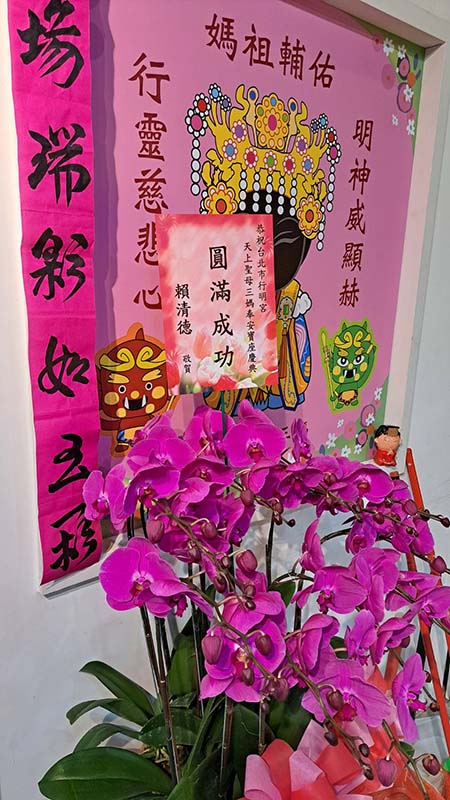 場瑞彩如玉
媽祖輔佑
明神威顯赫
行靈慈悲心
恭祝台北市行明宮
天上聖母三媽奉安寶座慶典
圓滿成功
賴清德
敬賀